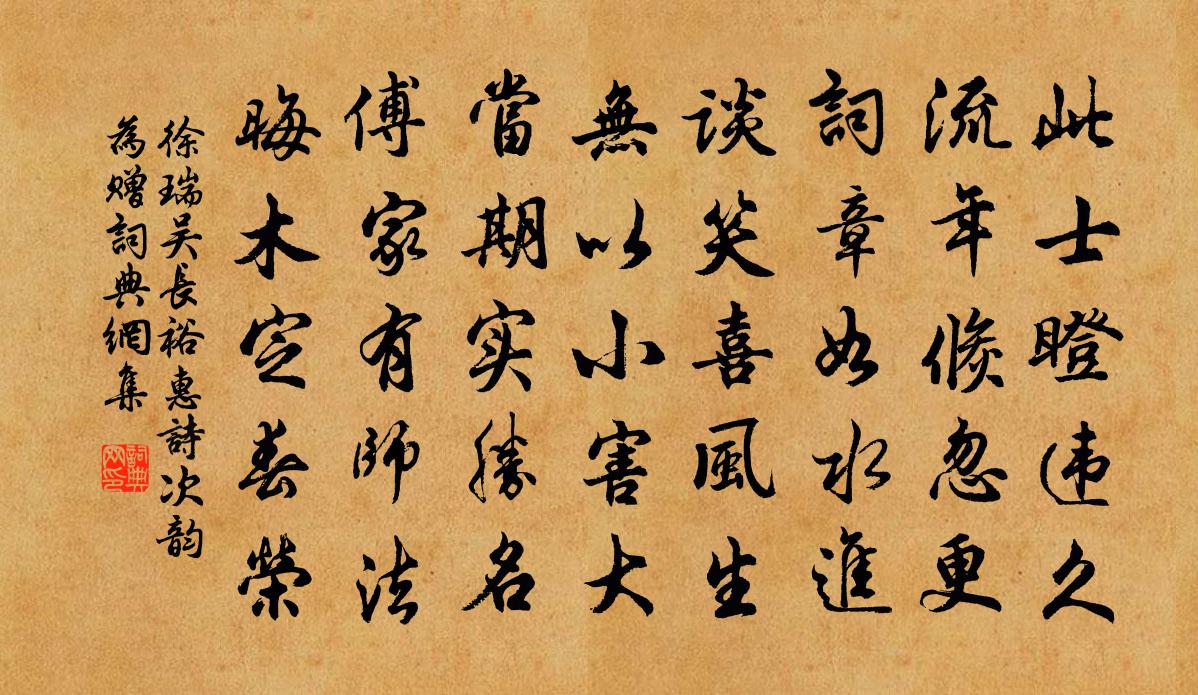 此士瞪违久
流年倏忽更
詞章如水進
談笑喜風生
無以小害大
當期实勝名
傅家有師法
晦木定春榮
徐瑞吴長裕惠詩次韵
為赠詞典網集
詞典网印